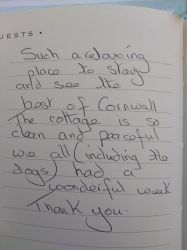 UESTS •
Such a relaxing
place to stay
and see the
best of Cornwall
The cottage is so
clean and peaceful
we all (including the
dogs) had a
wonderful week
Thank you.